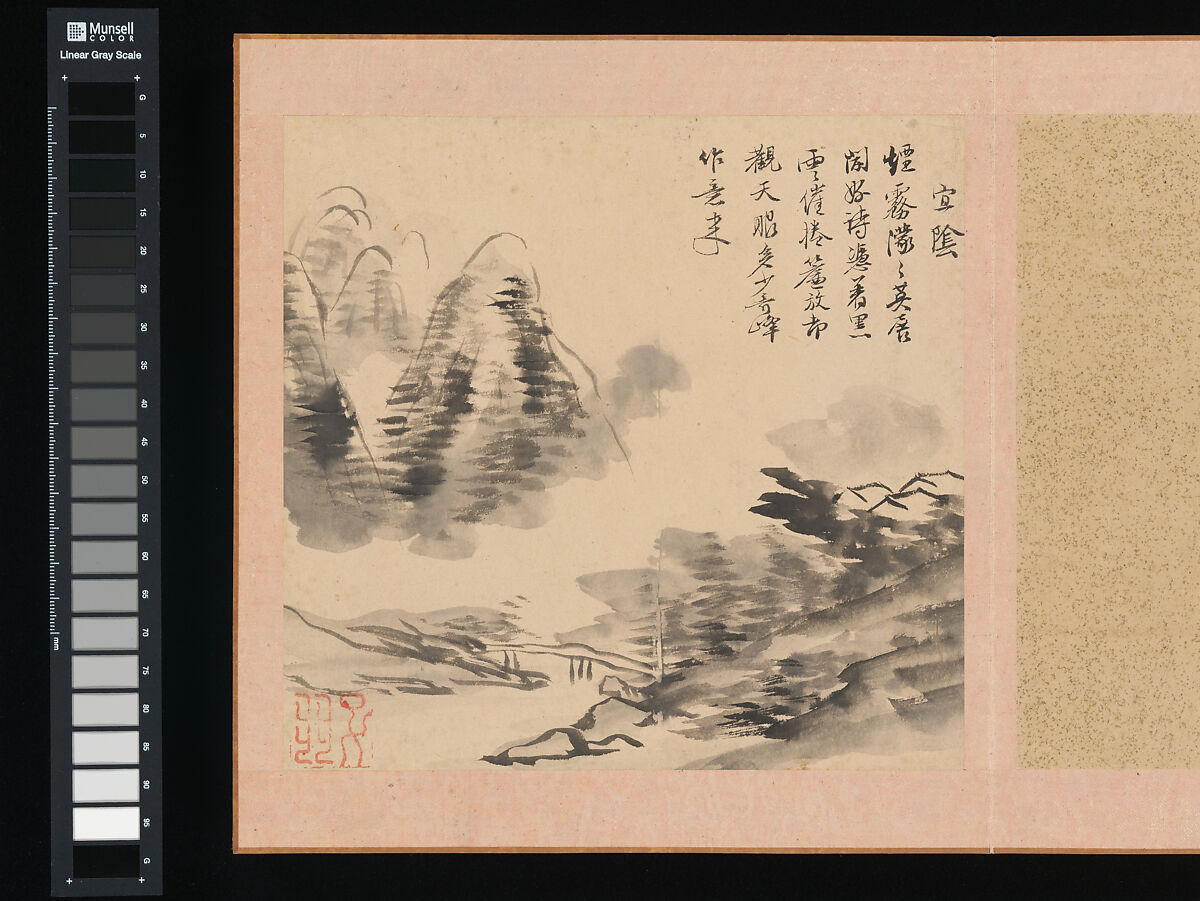 Munsell
COLOR
Linear Gray Scale
G
5
10
15
20
25
30
35
40
45
50
55
60
65
70
75
80
85
90
95
G
mm
宜陰
煙霧濛々
開好詩憑著黑
雲催捲簾放却
觀天眼多少奇峰
作意来